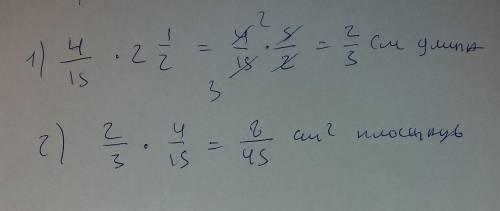 1) 4/15 · 2 1/2 = 4²/15₃ · 5/2 = 2/3 см длина
2) 2/3 · 4/15 = 8/45 см² площадь